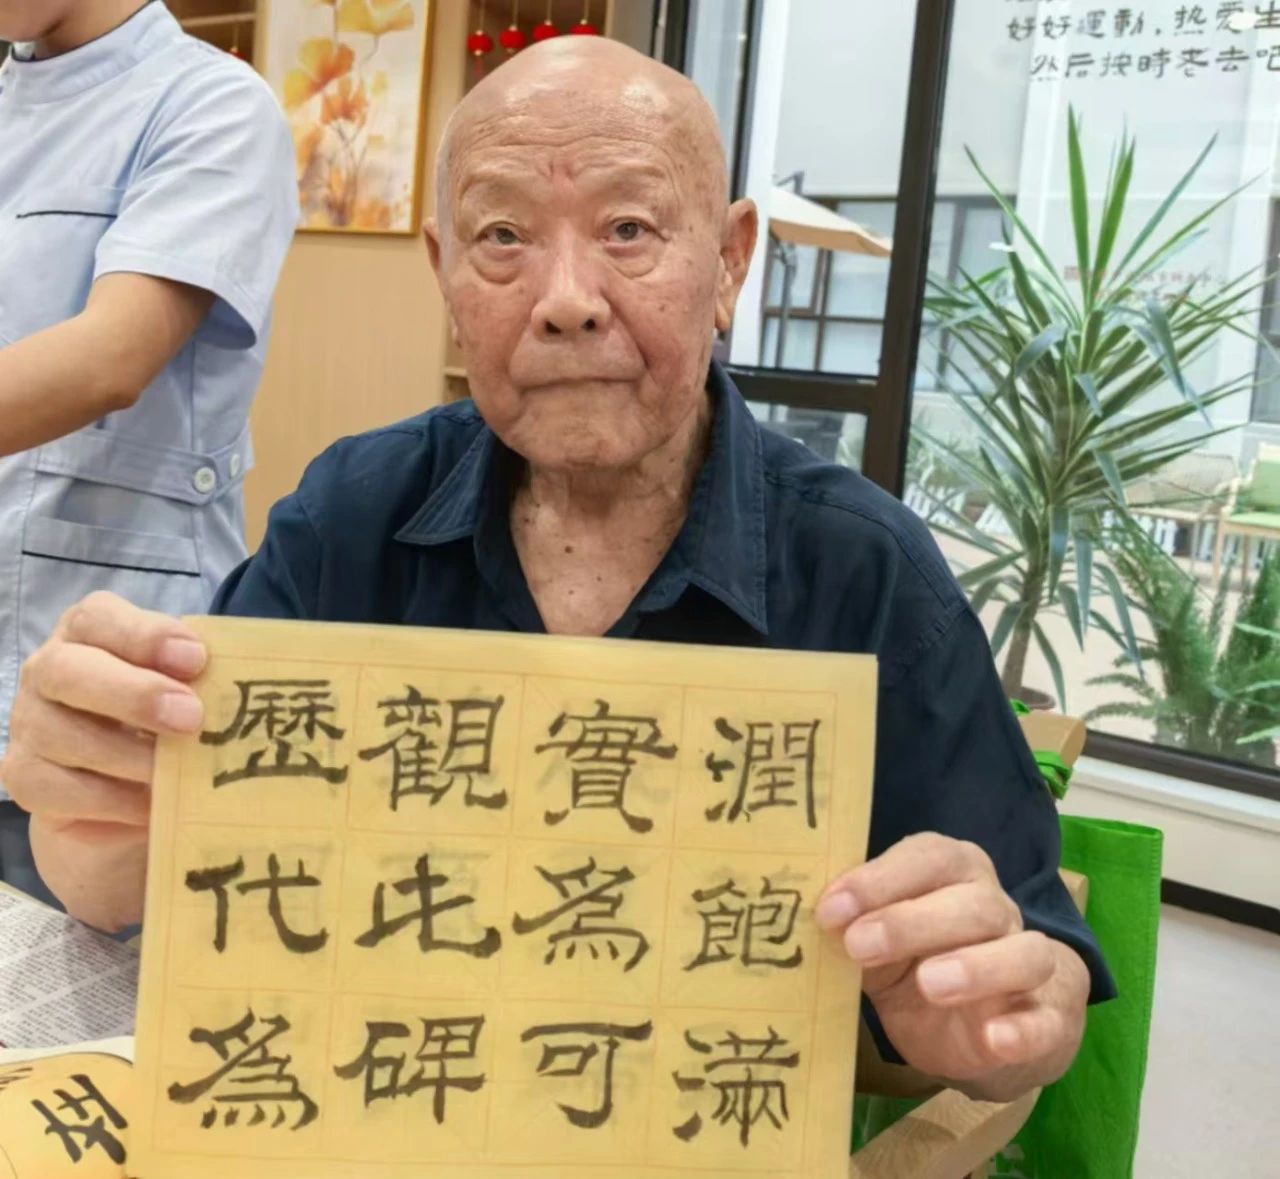 好好運動，热爱生
然后按時老去吧
潤飽滿
實爲可
觀此碑
歷代爲